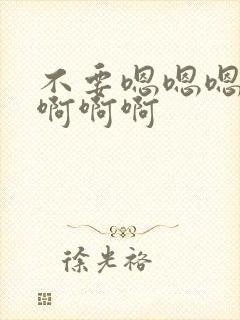 不要嗯嗯嗯
啊啊啊
徐光裕